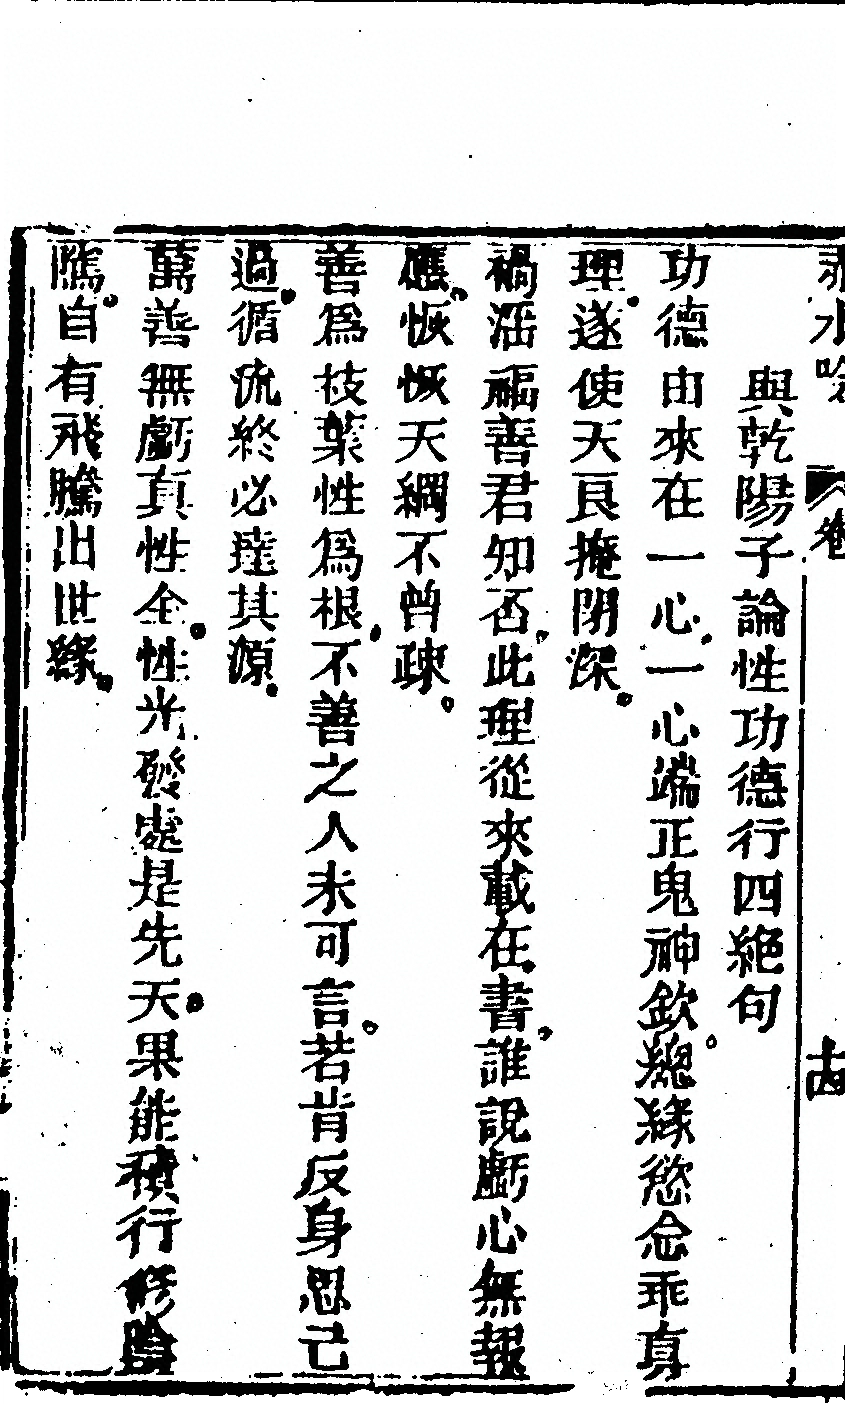 赤水吟　卷　十四
與乾陽子論性功德行四絕句
功德由來在一心。一心端正鬼神欽。總緣慾念乖真
理。遂使天良掩閉深。
禍淫福善君知否。此理從來載在書。誰說虧心無報
應。恢恢天網不曾疎。
善爲枝葉性爲根。不善之人未可言。若肯反身思己
過。循流終必達其源。
萬善無虧真性全。性光發處是先天。果能積行修陰
隲。自有飛騰出世緣。